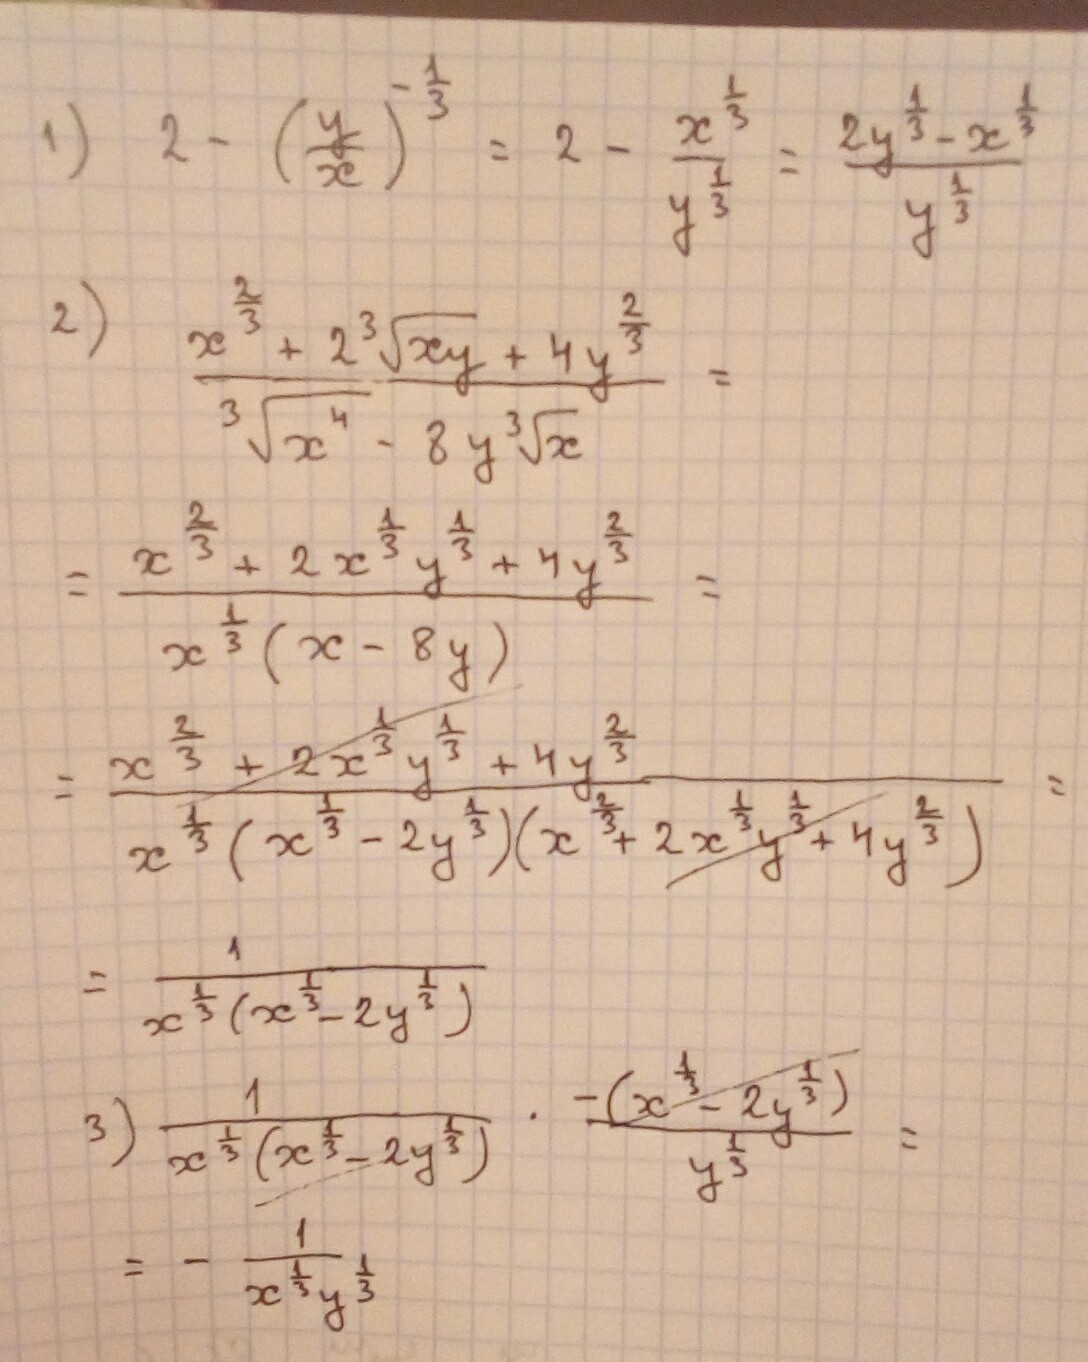 1) 2 - (y/x)^(-1/3) = 2 - x^(1/3)/y^(1/3) = (2y^(1/3) - x^(1/3))/y^(1/3)
2) (x^(2/3) + 2∛(xy) + 4y^(2/3))/(∛(x^4) - 8y∛x) =
= (x^(2/3) + 2x^(1/3)y^(1/3) + 4y^(2/3))/(x^(1/3)(x - 8y)) =
= (x^(2/3) + 2x^(1/3)y^(1/3) + 4y^(2/3))/(x^(1/3)(x^(1/3) - 2y^(1/3))(x^(2/3) + 2x^(1/3)y^(1/3) + 4y^(2/3))) =
= 1/(x^(1/3)(x^(1/3) - 2y^(1/3)))
3) 1/(x^(1/3)(x^(1/3) - 2y^(1/3))) · -(x^(1/3) - 2y^(1/3))/y^(1/3) =
= - 1/(x^(1/3)y^(1/3))